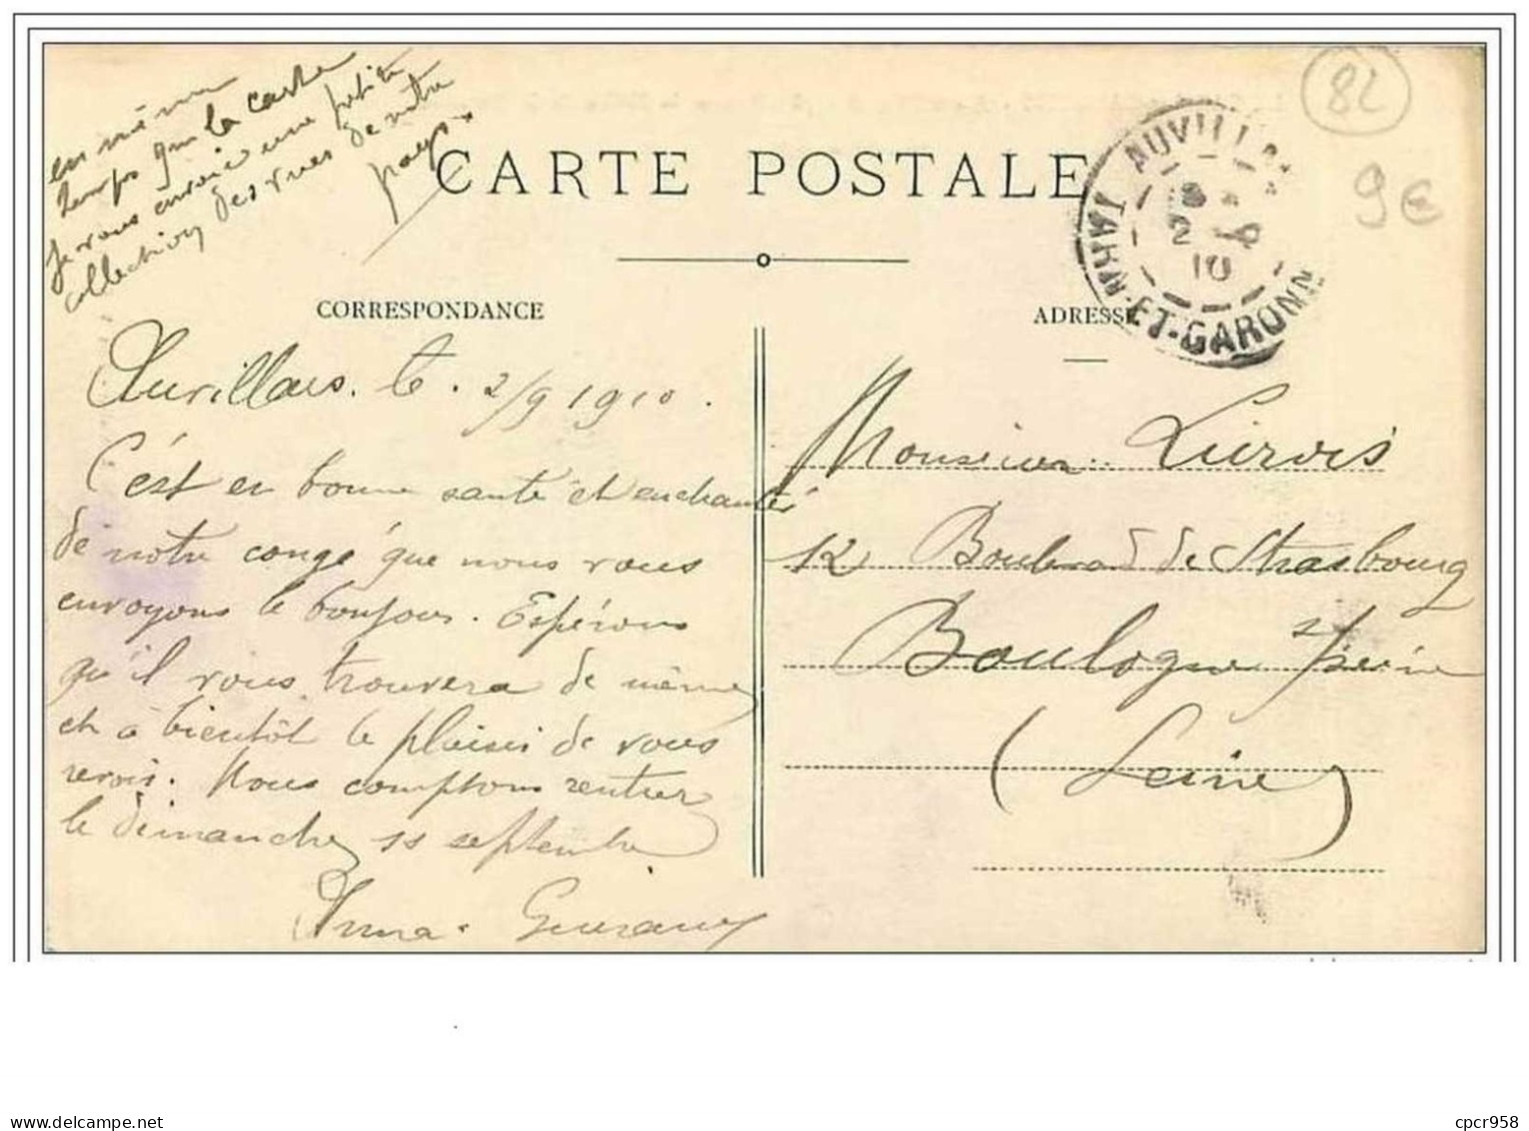 en même
temps que la carte
je vous envoie une petite
collection des vues de notre
pays
82
9€
CARTE POSTALE
AUVILLAR
TARN-ET-GARONNE
2 9
10
CORRESPONDANCE
ADRESSE
Auvillars. le. 2/9 1910.
C'est en bonne santé et enchantés
de notre congé que nous vous
envoyons le bonjour. Espérons
qu'il vous trouvera de même
et à bientôt le plaisir de vous
revoir. Nous comptons rentrer
le dimanche 11 septembre
Anna.
Monsieur
12 Boulevard de Strasbourg
Boulogne s/seine
(Seine)
cpcr958